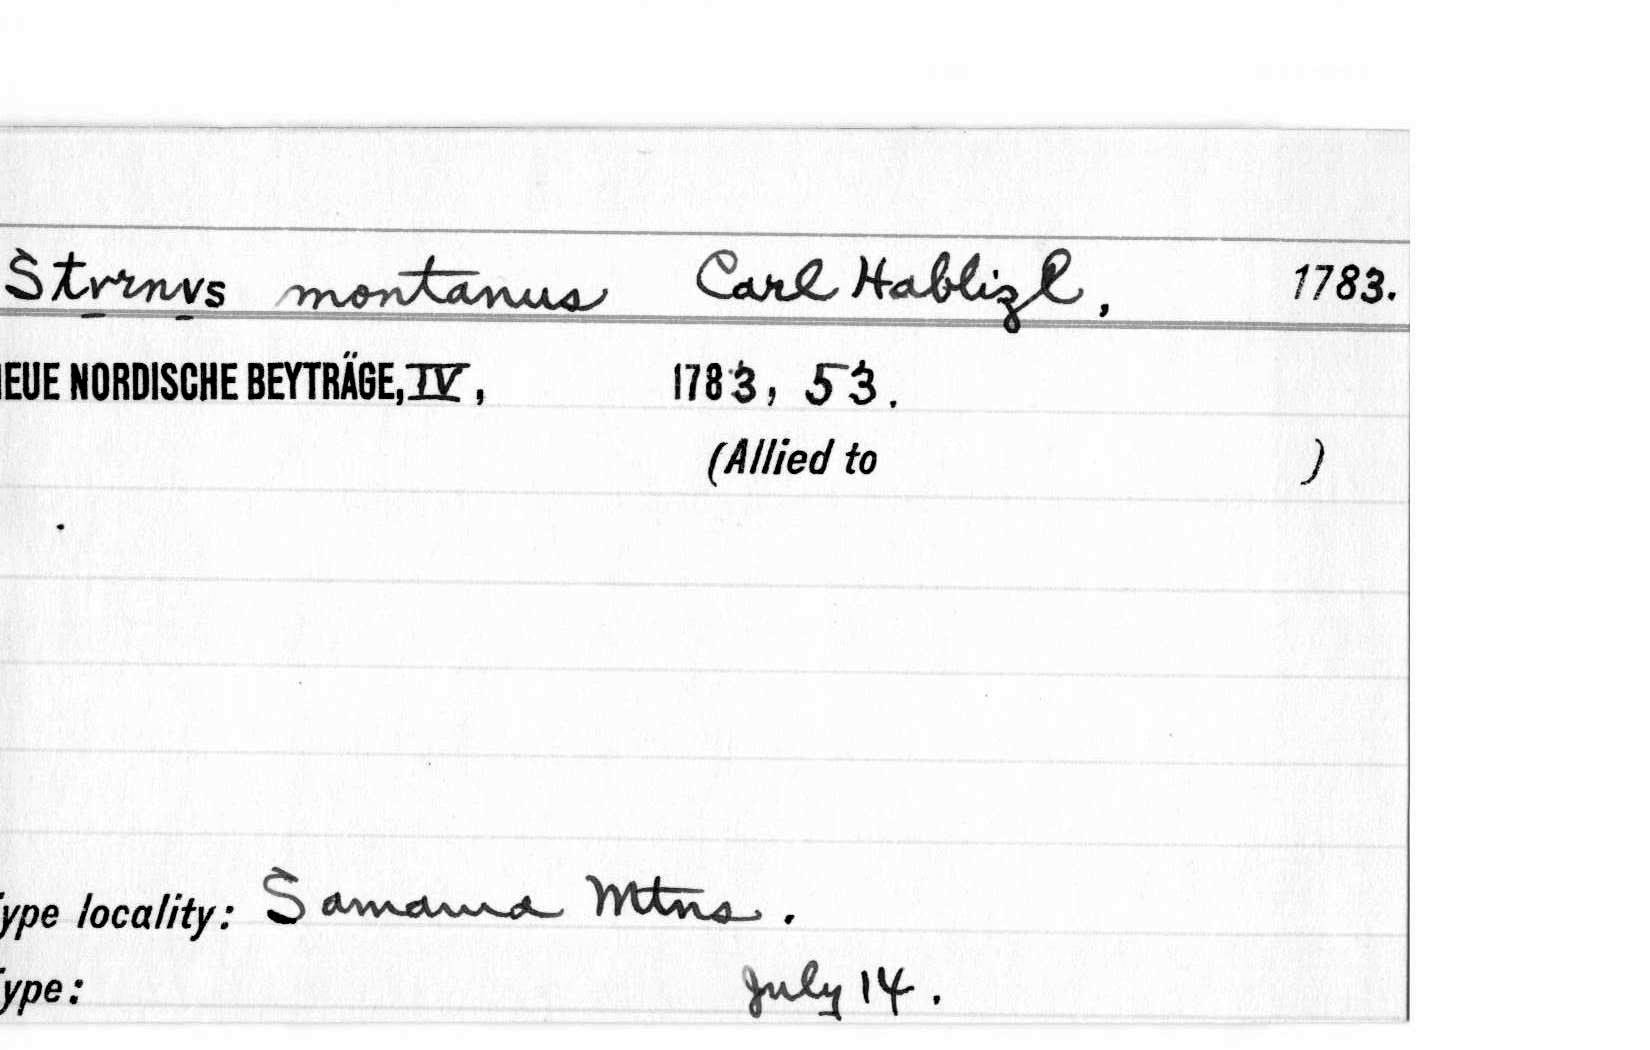 Stvrnvs montanus Carl Hablizl, 1783.
EUE NORDISCHE BEYTRÄGE, IV, 1783, 53.
(Allied to )
ype locality: Samamа Mtns.
ype: July 14.